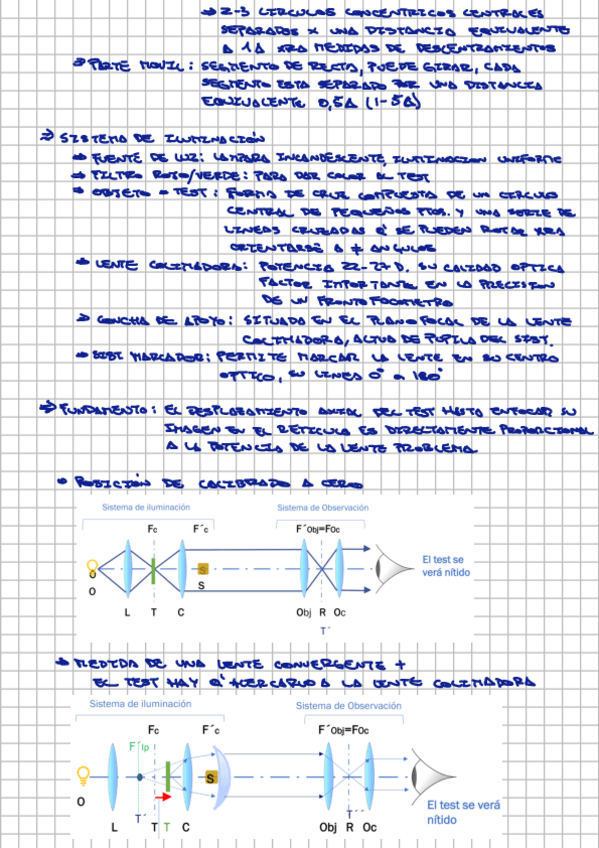 → 2-3 CIRCULOS CONCENTRICOS CENTRALES
SEPARADOS X UNA DISTANCIA EQUIVALENTE
A 1Δ XRA MEDIDAS DE DESCENTRAMIENTOS
→ PARTE MOVIL: SEGMENTO DE RECTA, PUEDE GIRAR, CADA
SEGMENTO ESTA SEPARADO POR UNA DISTANCIA
EQUIVALENTE 0,5Δ (1-5Δ)
⇒ SISTEMA DE ILUMINACIÓN
→ FUENTE DE LUZ: LAMPARA INCANDESCENTE, ILUMINACION UNIFORME
→ FILTRO ROJO/VERDE: PARA DAR COLOR AL TEST
→ OBJETO - TEST: FORMA DE CRUZ COMPUESTA DE UN CIRCULO
CENTRAL DE PEQUEÑOS PTOS. Y UNA SERIE DE
LINEAS CRUZADAS Q' SE PUEDEN ROTAR XRA
ORIENTARSE A ≠ ANGULOS
→ LENTE COLIMADORA: POTENCIA 22-27D. SU CALIDAD OPTICA
FACTOR IMPORTANTE EN LA PRECISION
DE UN FRONTOFOCOMETRO
→ CONCHA DE APOYO: SITUADA EN EL PLANO FOCAL DE LA LENTE
COLIMADORA, ALTURA DE PUPILA DEL SIST.
→ SIST MARCADOR: PERMITE MARCAR LA LENTE EN SU CENTRO
OPTICO, SU LINEA 0° a 180°
⇒ FUNDAMENTO: EL DESPLAZAMIENTO AXIAL DEL TEST HASTA ENFOCAR SU
IMAGEN EN EL RETICULO ES DIRECTAMENTE PROPORCIONAL
A LA POTENCIA DE LA LENTE PROBLEMA.
• POSICIÓN DE CALIBRADO A CERO
Sistema de iluminación Sistema de Observación
Fc F´c F´Obj=FOc
El test se
verá nítido
S
O S
O
L T C Obj R Oc
T´
→ MEDIDA DE UNA LENTE CONVERGENTE +
EL TEST HAY Q' ACERCARLO A LA LENTE COLIMADORA
Sistema de iluminación Sistema de Observación
Fc F´c F´Obj=FOc
F´lp
S
O
El test se verá
nítido
T´ T´´
L T T C Obj R Oc